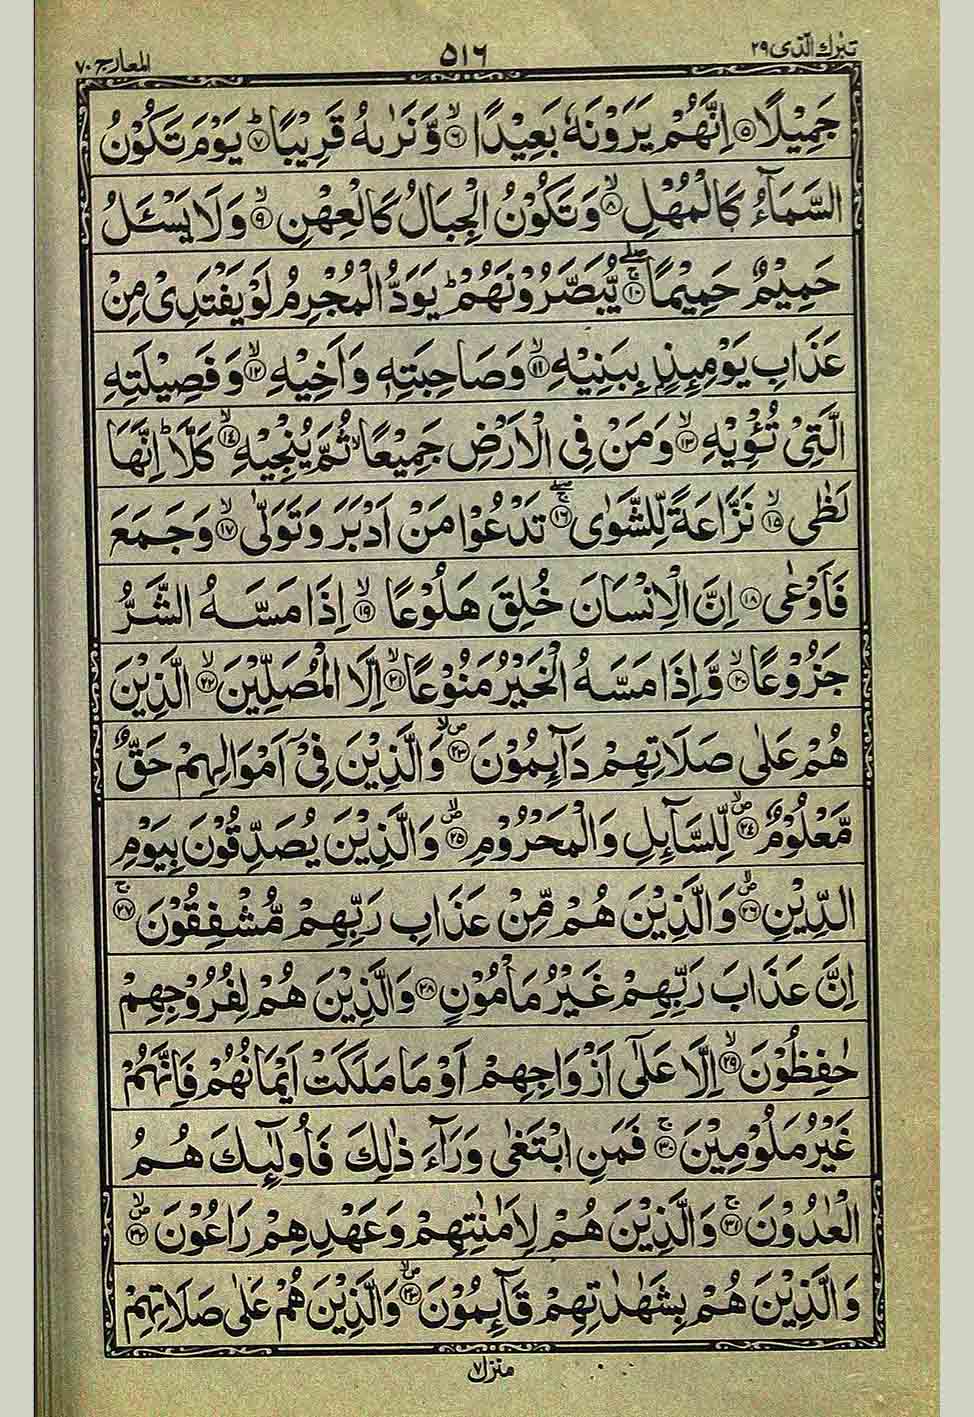 تبٰرك الّذى ٢٩ ٥١٦ المعارج ٧٠
جَمِيْلًا ۝٥ اِنَّهُمْ يَرَوْنَهٗ بَعِيْدًا ۙ۝٦ وَّنَرٰىهُ قَرِيْبًا ؕ۝٧ يَوْمَ تَكُوْنُ
السَّمَآءُ كَالْمُهْلِ ۙ۝٨ وَتَكُوْنُ الْجِبَالُ كَالْعِهْنِ ۙ۝٩ وَلَا يَسْـَٔلُ
حَمِيْمٌ حَمِيْمًا ۚۖ۝١٠ يُّبَصَّرُوْنَهُمْ ؕ يَوَدُّ الْمُجْرِمُ لَوْ يَفْتَدِىْ مِنْ
عَذَابِ يَوْمِئِذٍۭ بِبَنِيْهِ ۙ۝١١ وَصَاحِبَتِهٖ وَاَخِيْهِ ۙ۝١٢ وَفَصِيْلَتِهِ
الَّتِىْ تُـْٔوِيْهِ ۙ۝١٣ وَمَنْ فِى الْاَرْضِ جَمِيْعًا ۙ ثُمَّ يُنْجِيْهِ ۙ۝١٤ كَلَّا ؕ اِنَّهَا
لَظٰى ۙ۝١٥ نَزَّاعَةً لِّلشَّوٰى ۚۖ۝١٦ تَدْعُوْا مَنْ اَدْبَرَ وَتَوَلّٰى ۙ۝١٧ وَجَمَعَ
فَاَوْعٰى ۝١٨ اِنَّ الْاِنْسَانَ خُلِقَ هَلُوْعًا ۙ۝١٩ اِذَا مَسَّهُ الشَّرُّ
جَزُوْعًا ۙ۝٢٠ وَّاِذَا مَسَّهُ الْخَيْرُ مَنُوْعًا ۙ۝٢١ اِلَّا الْمُصَلِّيْنَ ۙ۝٢٢ الَّذِيْنَ
هُمْ عَلٰى صَلَاتِهِمْ دَآئِمُوْنَ ۪ۙ۝٢٣ وَالَّذِيْنَ فِىْۤ اَمْوَالِهِمْ حَقٌّ
مَّعْلُوْمٌ ۪ۙ۝٢٤ لِّلسَّآئِلِ وَالْمَحْرُوْمِ ۪ۙ۝٢٥ وَالَّذِيْنَ يُصَدِّقُوْنَ بِيَوْمِ
الدِّيْنِ ۪ۙ۝٢٦ وَالَّذِيْنَ هُمْ مِّنْ عَذَابِ رَبِّهِمْ مُّشْفِقُوْنَ ۚ۝٢٧
اِنَّ عَذَابَ رَبِّهِمْ غَيْرُ مَاْمُوْنٍ ۝٢٨ وَالَّذِيْنَ هُمْ لِفُرُوْجِهِمْ
حٰفِظُوْنَ ۙ۝٢٩ اِلَّا عَلٰٓى اَزْوَاجِهِمْ اَوْ مَا مَلَكَتْ اَيْمَانُهُمْ فَاِنَّهُمْ
غَيْرُ مَلُوْمِيْنَ ۚ۝٣٠ فَمَنِ ابْتَغٰى وَرَآءَ ذٰلِكَ فَاُولٰٓئِكَ هُمُ
الْعٰدُوْنَ ۚ۝٣١ وَالَّذِيْنَ هُمْ لِاَمٰنٰتِهِمْ وَعَهْدِهِمْ رَاعُوْنَ ۪ۙ۝٣٢
وَالَّذِيْنَ هُمْ بِشَهٰدٰتِهِمْ قَآئِمُوْنَ ۪ۙ۝٣٣ وَالَّذِيْنَ هُمْ عَلٰى صَلَاتِهِمْ
منزل ٧